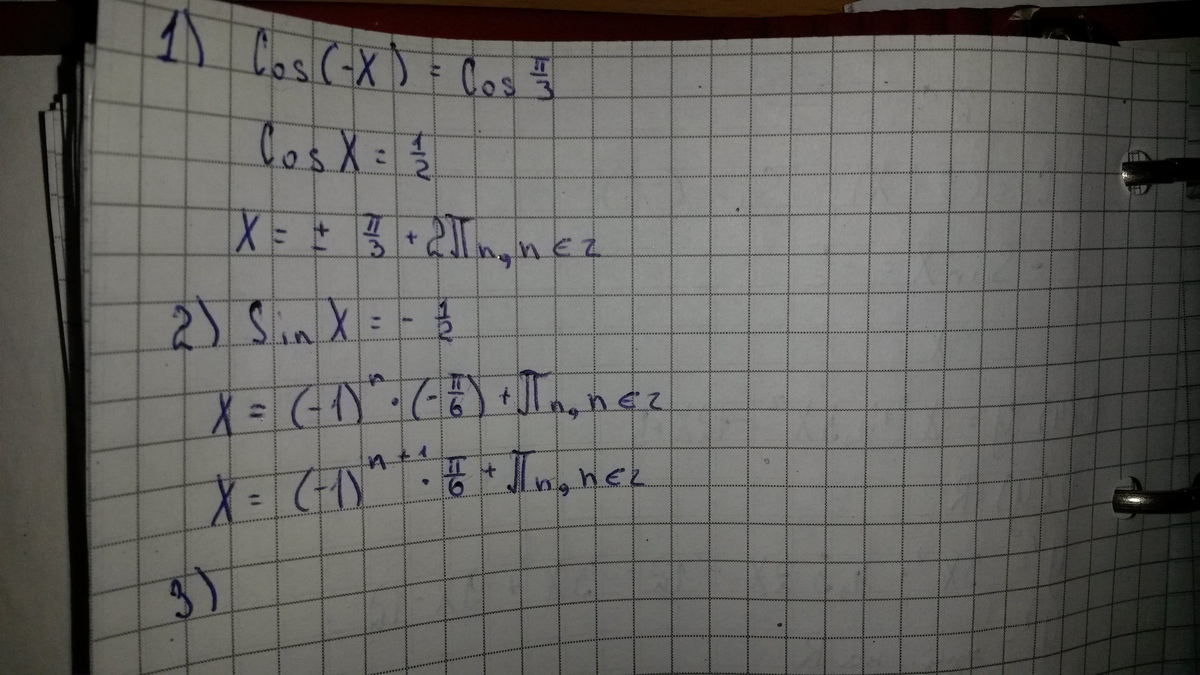 1) Cos(-X) = Cos π/3
Cos X = 1/2
X = ± π/3 + 2πn, n ∈ z
2) Sin X = - 1/2
X = (-1)^n · (-π/6) + πn, n ∈ z
X = (-1)^(n+1) · π/6 + πn, n ∈ z
3)